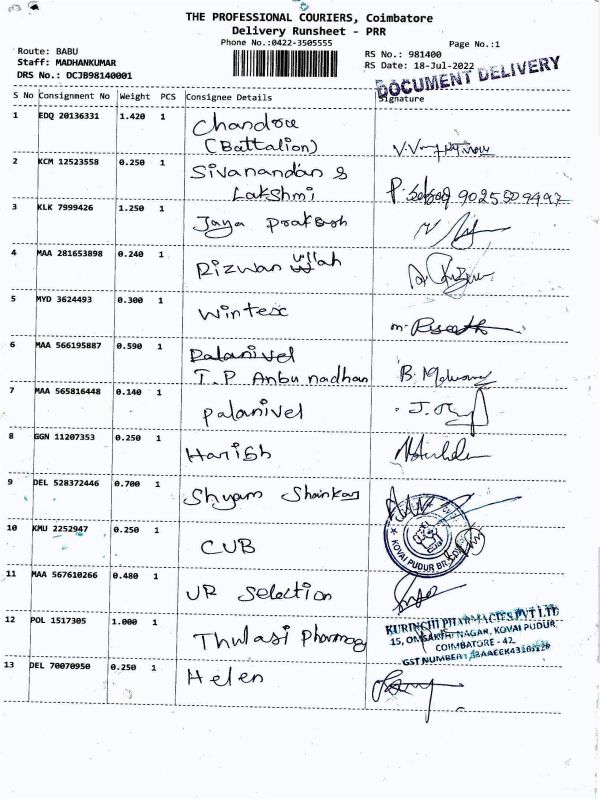 THE PROFESSIONAL COURIERS, Coimbatore
Delivery Runsheet - PRR
Phone No.:0422-3505555
Page No.:1
Route: BABU
RS No.: 981400
Staff: MADHANKUMAR
RS Date: 18-Jul-2022
DRS No.: DCJB98140001
DOCUMENT DELIVERY
S No Consignment No Weight PCS Consignee Details Signature
1 EDQ 20136331 1.420 1 Chandore
(Battalion)
2 KCM 12523558 0.250 1 Sivanandan &
Lakshmi
9025509497
3 KLK 7999426 1.250 1 Jaya prakash
4 MAA 281653898 0.240 1 Rizwan ullah
5 MYD 3624493 0.300 1 Wintex
6 MAA 566195887 0.590 1 Palanivel
T.P Anbu nadhan
7 MAA 565816448 0.140 1 Palanivel
8 GGN 11207353 0.250 1 Harish
9 DEL 528372446 0.700 1 Shyam Shankar
10 KMU 2252947 0.250 1 CUB
KOVAI PUDUR BR.
11 MAA 567610266 0.480 1 UR Selection
12 POL 1517305 1.000 1 Thulasi Pharmacy
KURINCHI PHARMACIES PVT LTD
15, OM SAKTHI NAGAR, KOVAI PUDUR,
COIMBATORE - 42.
GST NUMBER:
13 DEL 70070950 0.250 1 Helen